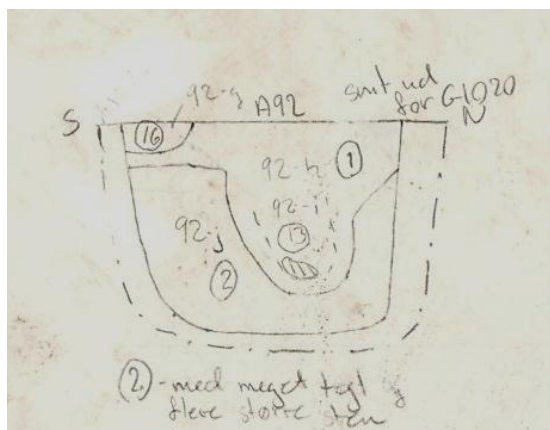 92-g
A92
snit ud
for G1020
S
N
16
92-h
1
92-i
13
92-j
2
2 - med meget tegl og
flere større sten